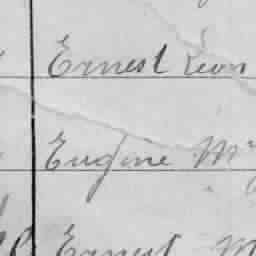 Ernest Leon
Eugene M
Ernest M